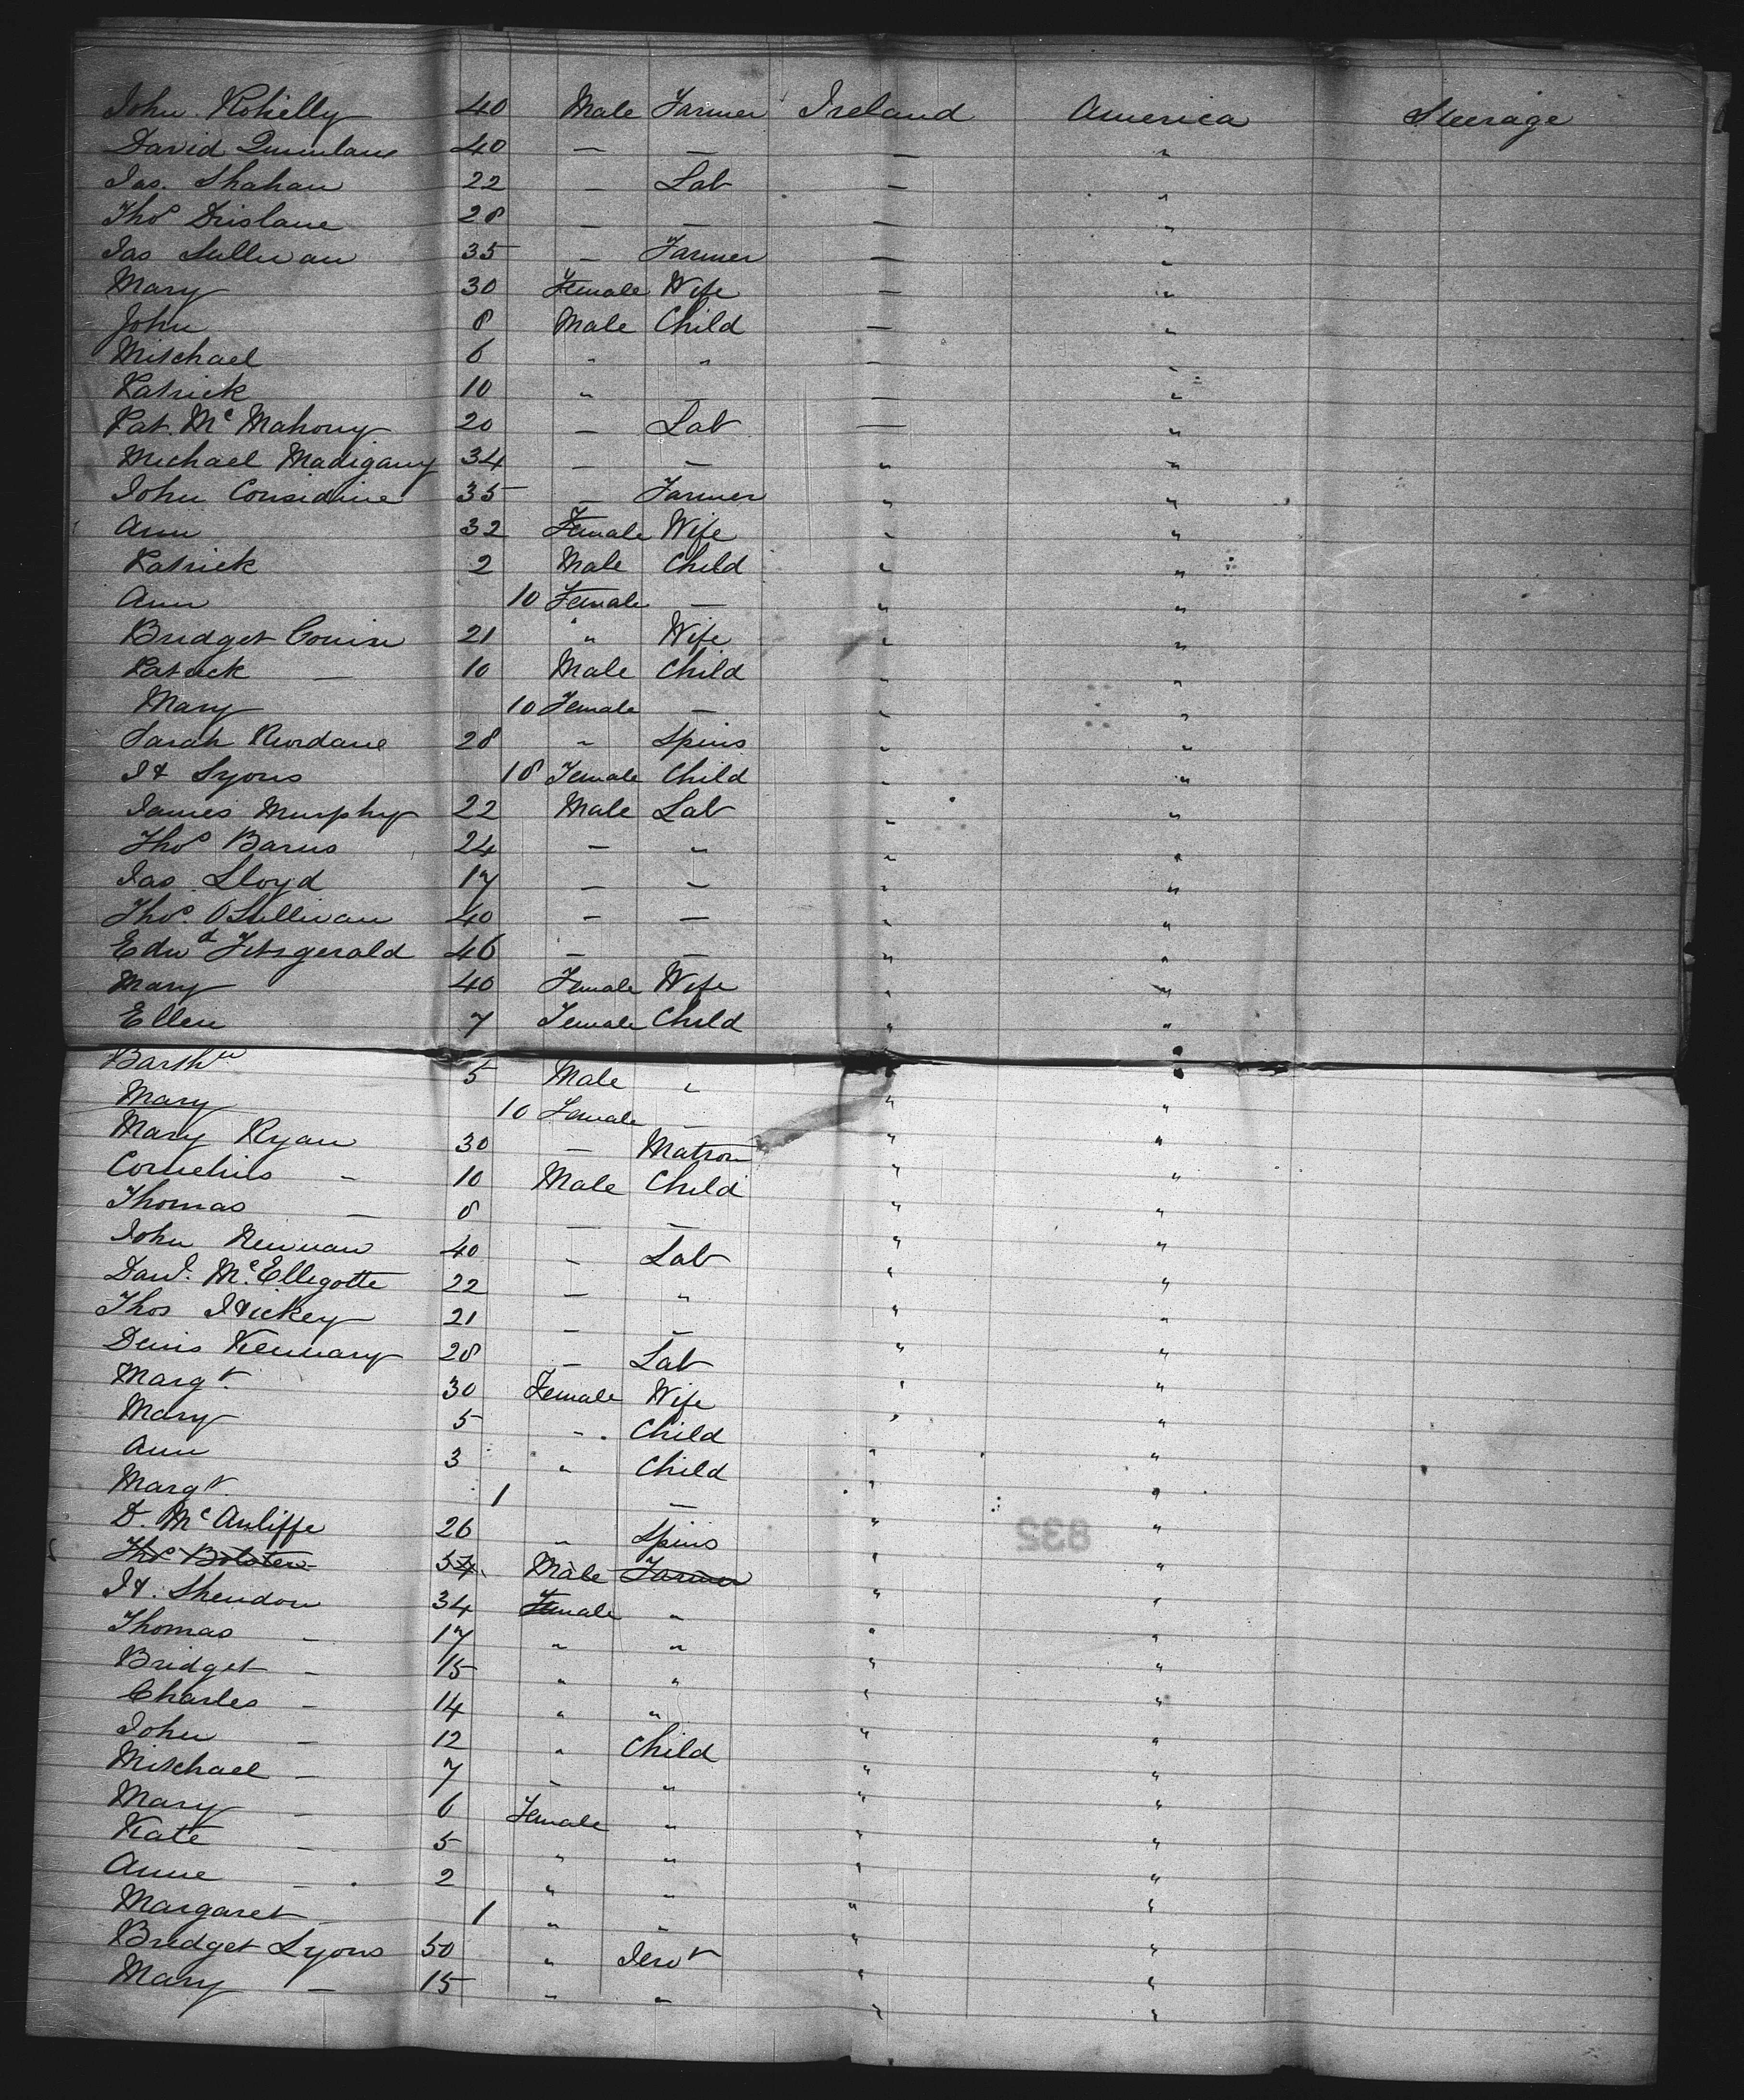 John Rohielly 40 Male Farmer Ireland America Steerage
David Quinlan 40 — — — "
Jas. Shahan 22 — Lab — "
Thos Drislane 28 — — — "
Jas Sullivan 35 — Farmer — "
Mary 30 Female Wife — "
John 8 Male Child — "
Mischael 6 " " — "
Patrick 10 " — — "
Pat. Mc Mahony 20 — Lab — "
Michael Madigany 34 — — " "
John Considine 35 — Farmer " "
Ann 32 Female Wife " "
Patrick 2 Male Child " "
Ann 10 Female — " "
Bridget 21 " Wife " "
Patrick — 10 Male Child " "
Mary 10 Female — " "
Sarah Riordane 28 " Spins " "
Lyons 18 Female Child " "
James Murphy 22 Male Lab " "
Thos Barns 24 — " " "
Jas. Lloyd 17 — — " "
Thos. OSullivan 40 — — " "
Edwd Fitzgerald 46 — — " "
Mary 40 Female Wife " "
Ellen 7 Female Child " "
Barthw 5 Male " " "
Mary 10 Female — " "
Mary Ryan 30 — Matron " "
Cornelius — 10 Male Child " "
Thomas — 8 — — " "
John 40 — Lab " "
Danl. Mc Elligotte 22 — " " "
Thos Hickey 21 — — " "
Denis 28 — Lab " "
Margt. 30 Female Wife " "
Mary 5 " Child " "
Ann 3 " Child " "
Margt. 1 — " "
D. Mc Auliffe 26 " Spins " "
Thos Bolster 54 Male Farmer " "
Shendon 34 Female " " "
Thomas — 17 " " " "
Bridget — 15 " " " "
Charles — 14 " " " "
John — 12 " Child " "
Mischael — 7 " " " "
Mary — 6 Female " " "
Kate — 5 " " " "
Anne — 2 " " " "
Margaret — 1 " " " "
Bridget Lyons 50 " Servt " "
Mary — 15 " " " "
832